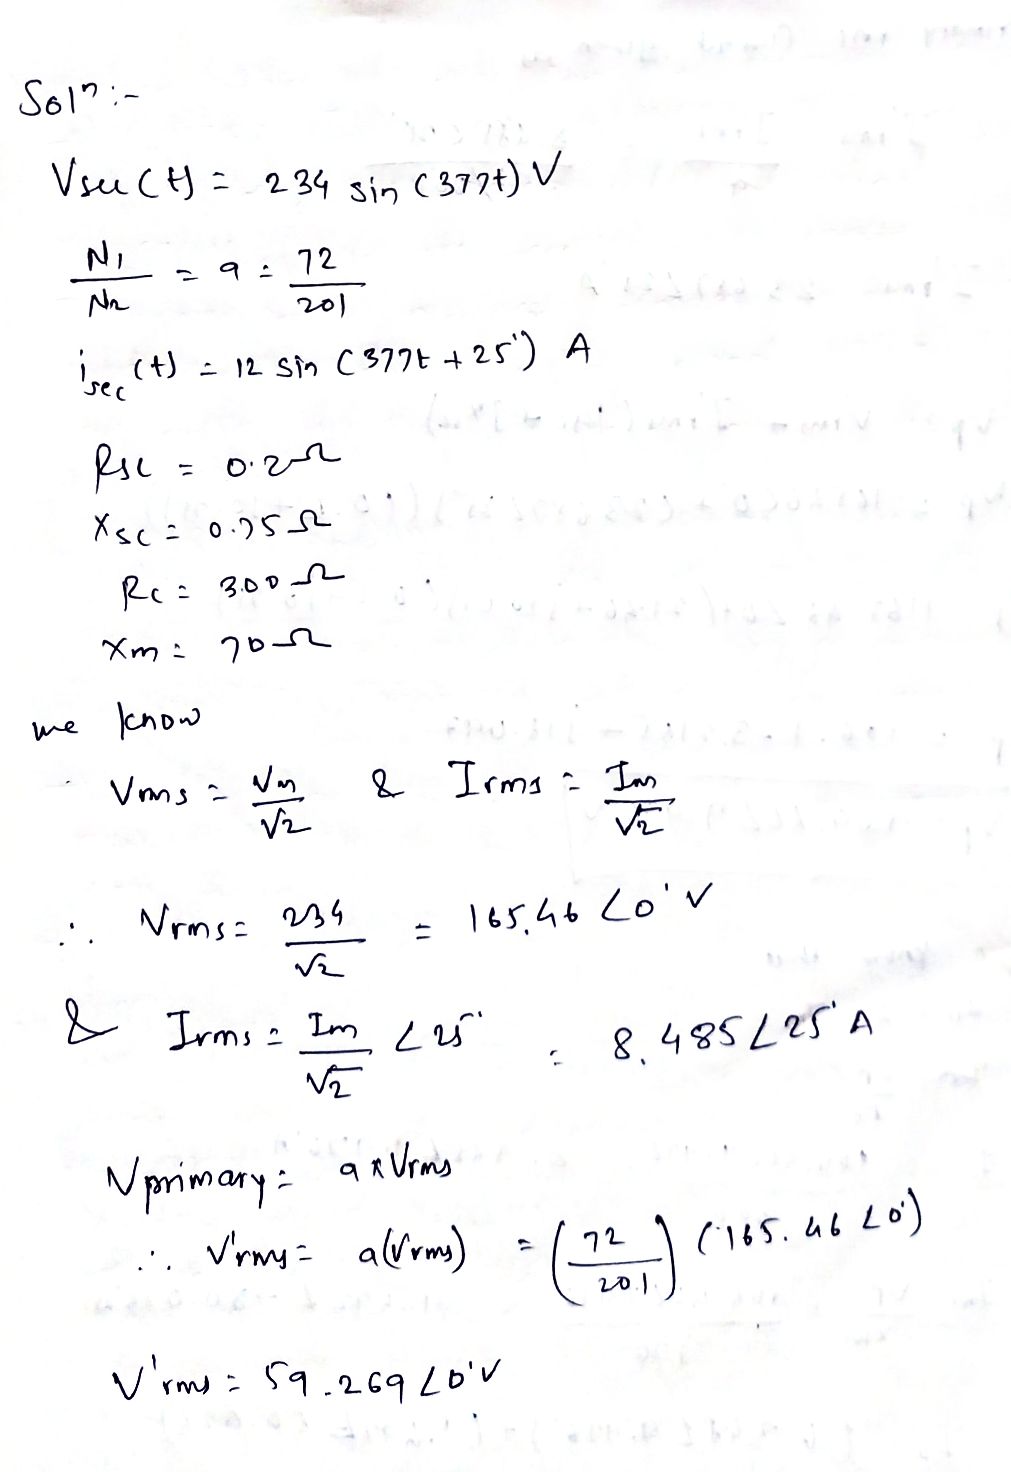 Solⁿ :-
Vsec(t) = 234 sin(377t) V
N1/N2 = a = 72/201
isec(t) = 12 sin(377t + 25°) A
Rsc = 0.2Ω
Xsc = 0.75Ω
Rc = 300Ω
Xm = 70Ω
we know
Vrms = Vm/√2 & Irms = Im/√2
∴ Vrms = 234/√2 = 165.46 ∠0° V
& Irms = Im/√2 ∠25° = 8.485∠25° A
Vprimary = a x Vrms
∴ V'rms = a(Vrms) = (72/201) (165.46 ∠0°)
V'rms = 59.269 ∠0° V